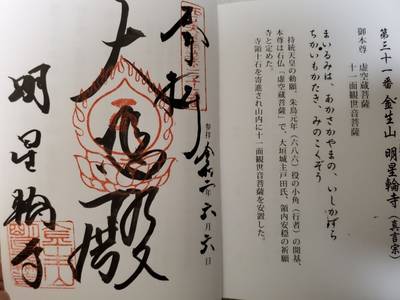 第三十一番 金生山 明星輪寺(真言宗)
御本尊 虚空蔵菩薩
十一面観世音菩薩
まいるみは、あかさかやまの、いしかはら
ちかいもかたき、みのこくぞう
持統天皇の勅願、朱鳥元年(六八六)役の小角(行者)の開基、
本尊は石仏「虚空蔵菩薩」で、大垣城主戸田氏、領内安穏の祈願
寺と定めた。
寺領十石を寄進され山内に十一面観世音菩薩を安置した。
奉拝
参拝 六月六日
大悲殿
明星輪寺